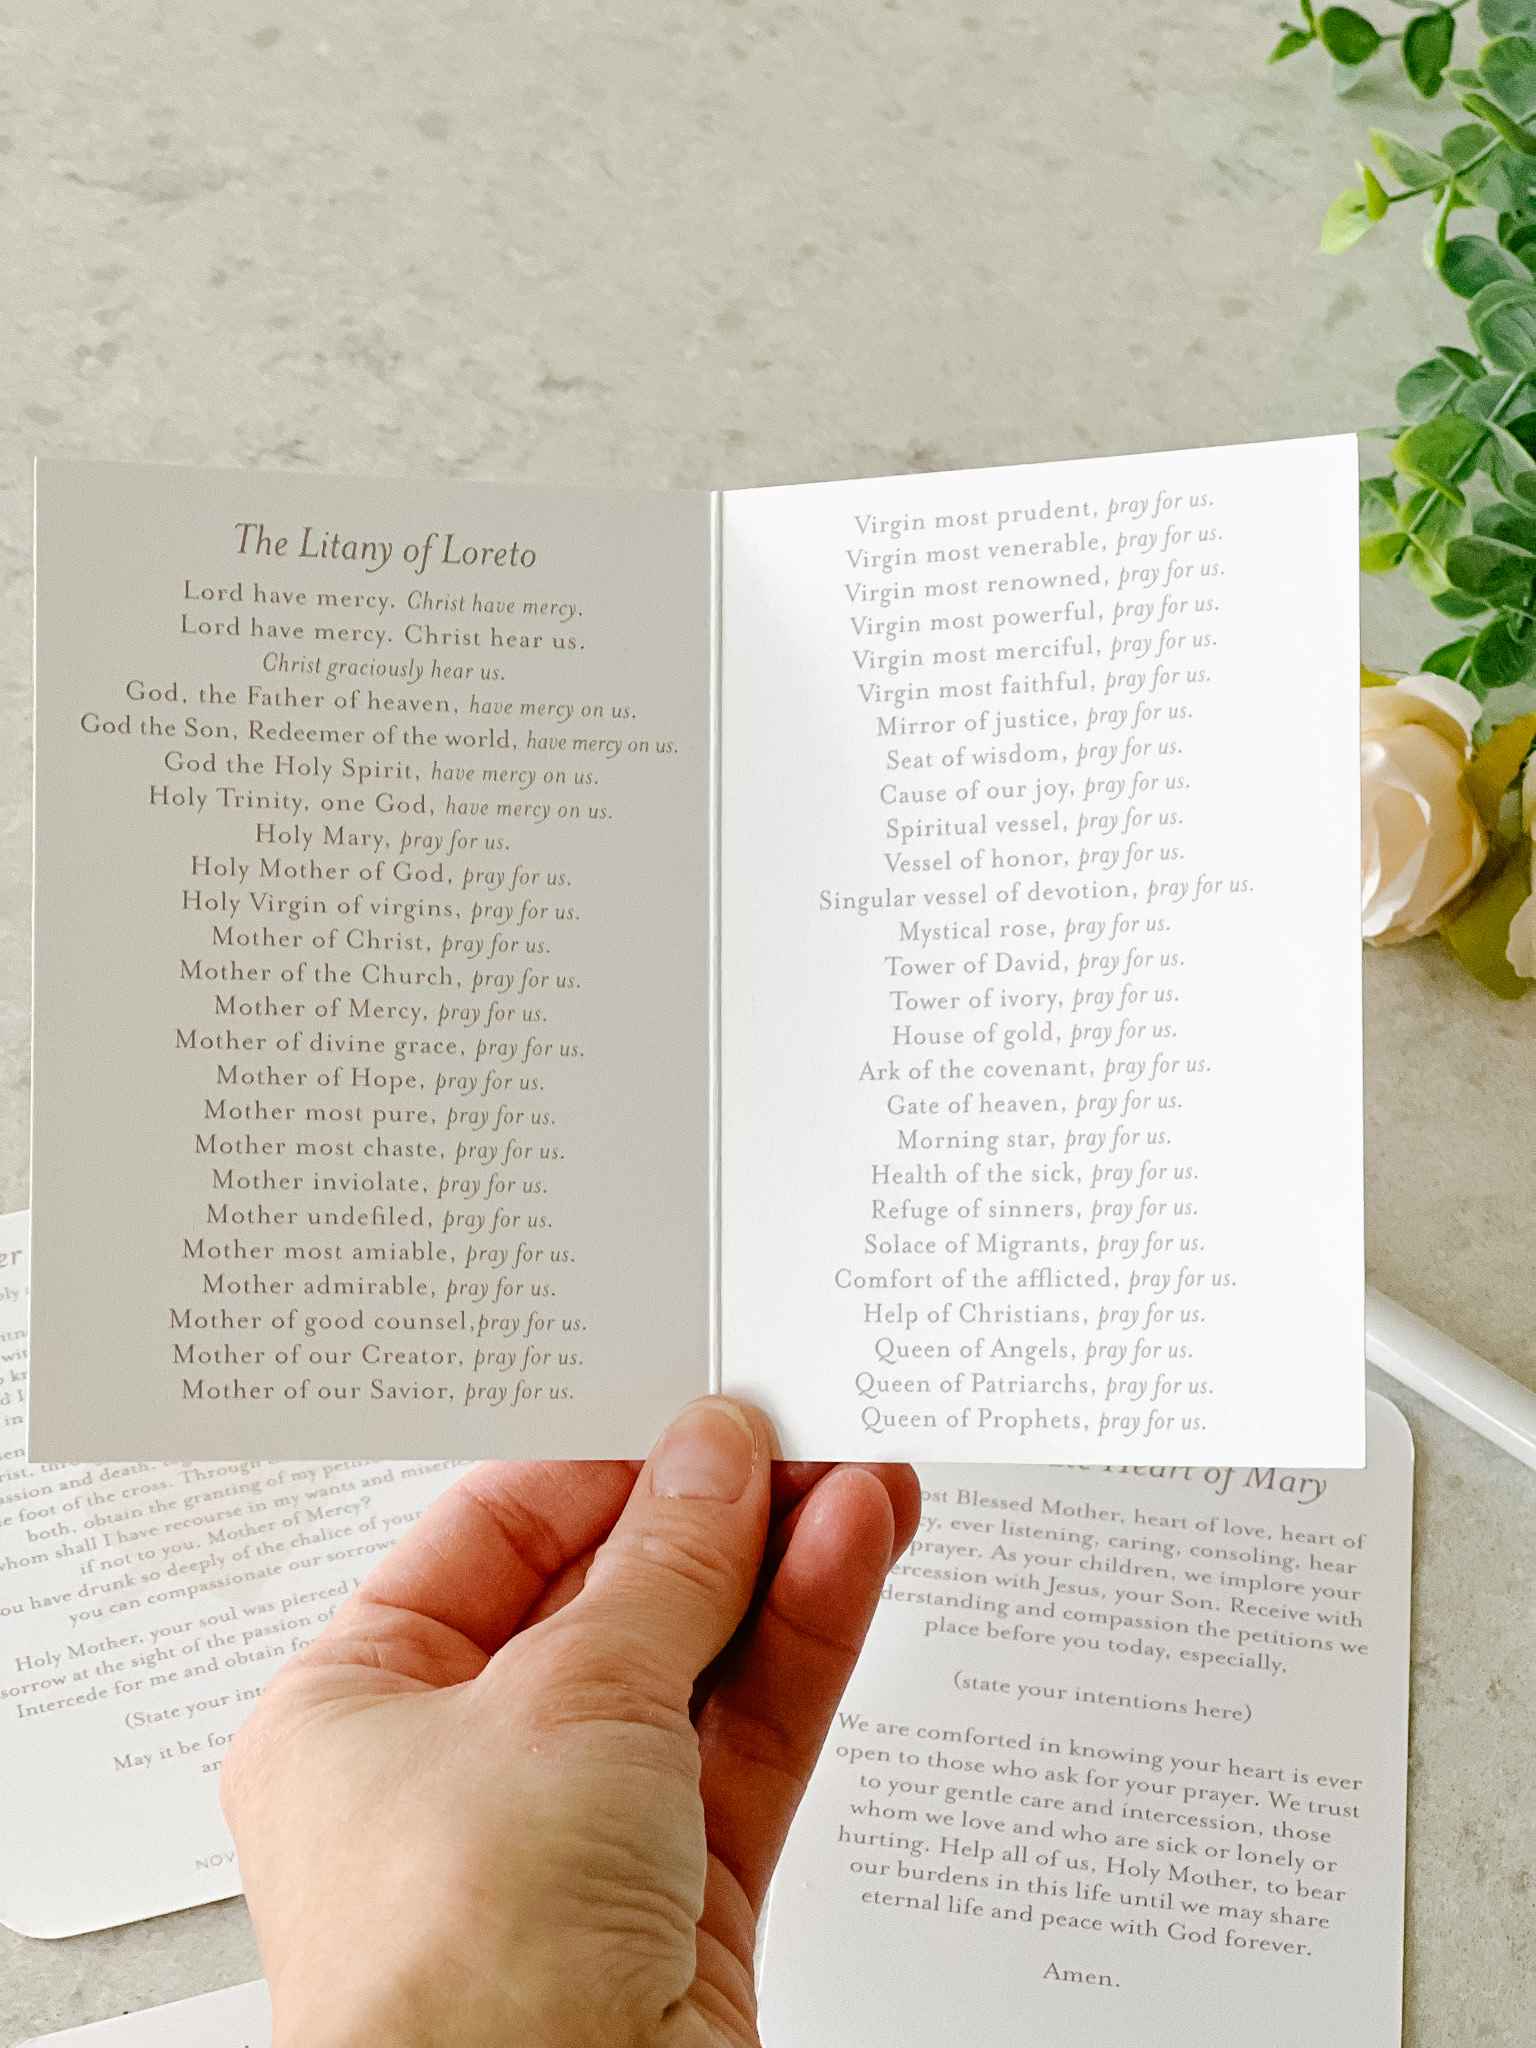 The Litany of Loreto
Lord have mercy. Christ have mercy.
Lord have mercy. Christ hear us.
Christ graciously hear us.
God, the Father of heaven, have mercy on us.
God the Son, Redeemer of the world, have mercy on us.
God the Holy Spirit, have mercy on us.
Holy Trinity, one God, have mercy on us.
Holy Mary, pray for us.
Holy Mother of God, pray for us.
Holy Virgin of virgins, pray for us.
Mother of Christ, pray for us.
Mother of the Church, pray for us.
Mother of Mercy, pray for us.
Mother of divine grace, pray for us.
Mother of Hope, pray for us.
Mother most pure, pray for us.
Mother most chaste, pray for us.
Mother inviolate, pray for us.
Mother undefiled, pray for us.
Mother most amiable, pray for us.
Mother admirable, pray for us.
Mother of good counsel,pray for us.
Mother of our Creator, pray for us.
Mother of our Savior, pray for us.
Virgin most prudent, pray for us.
Virgin most venerable, pray for us.
Virgin most renowned, pray for us.
Virgin most powerful, pray for us.
Virgin most merciful, pray for us.
Virgin most faithful, pray for us.
Mirror of justice, pray for us.
Seat of wisdom, pray for us.
Cause of our joy, pray for us.
Spiritual vessel, pray for us.
Vessel of honor, pray for us.
Singular vessel of devotion, pray for us.
Mystical rose, pray for us.
Tower of David, pray for us.
Tower of ivory, pray for us.
House of gold, pray for us.
Ark of the covenant, pray for us.
Gate of heaven, pray for us.
Morning star, pray for us.
Health of the sick, pray for us.
Refuge of sinners, pray for us.
Solace of Migrants, pray for us.
Comfort of the afflicted, pray for us.
Help of Christians, pray for us.
Queen of Angels, pray for us.
Queen of Patriarchs, pray for us.
Queen of Prophets, pray for us.
passion and death,
the foot of the cross. Through
both, obtain the granting of my
whom shall I have recourse in my wants and
if not to you, Mother of Mercy?
have drunk so deeply of the chalice of your
you can compassionate our sorrows
Holy Mother, your soul was pierced
sorrow at the sight of the passion of
Intercede for me and obtain
(State your
May it be for
NOV
Heart of Mary
Blessed Mother, heart of love, heart of
ever listening, caring, consoling, hear
prayer. As your children, we implore your
with Jesus, your Son. Receive with
and compassion the petitions we
place before you today, especially,
(state your intentions here)
We are comforted in knowing your heart is ever
open to those who ask for your prayer. We trust
to your gentle care and intercession, those
whom we love and who are sick or lonely or
hurting. Help all of us, Holy Mother, to bear
our burdens in this life until we may share
eternal life and peace with God forever.
Amen.